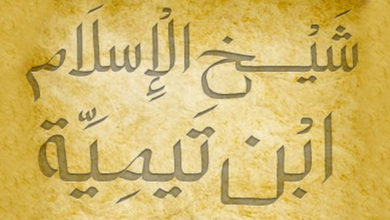 شَيْخ الْإِسلَام
ابْن تَيمِيِّة